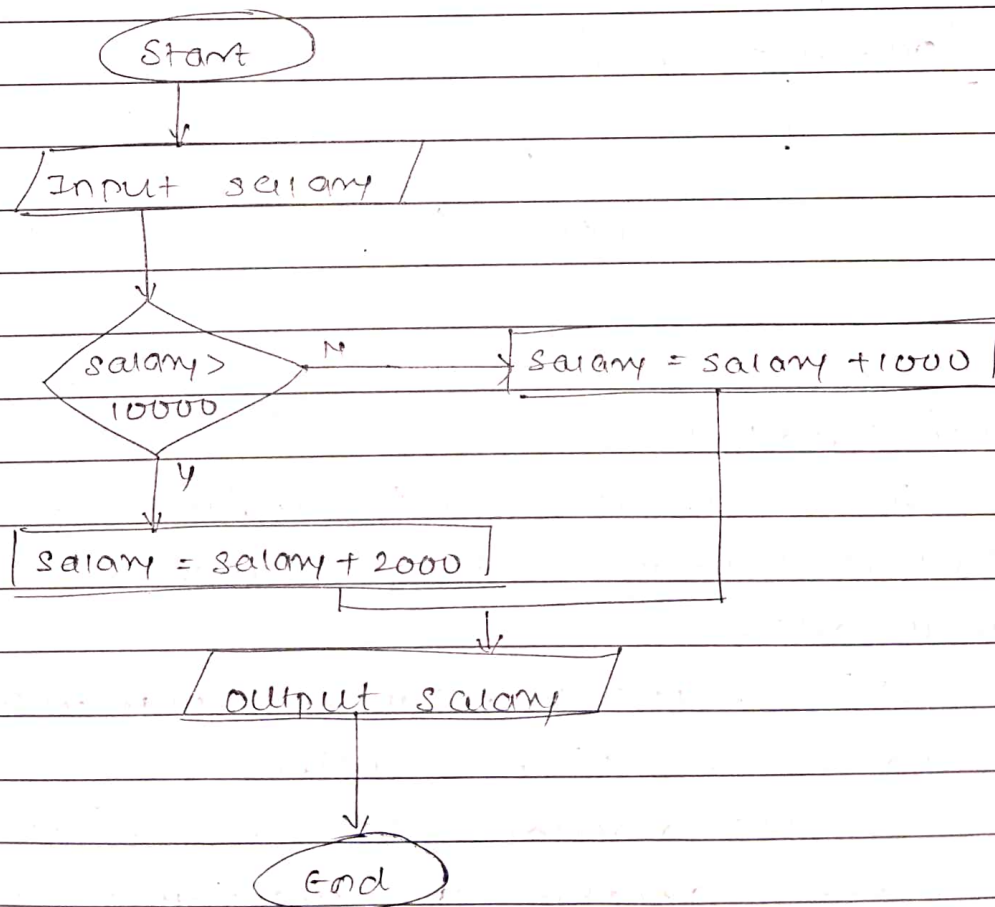 Start
Input salary
salary >
10000
N
salary = salary + 1000
Y
salary = salary + 2000
output salary
End